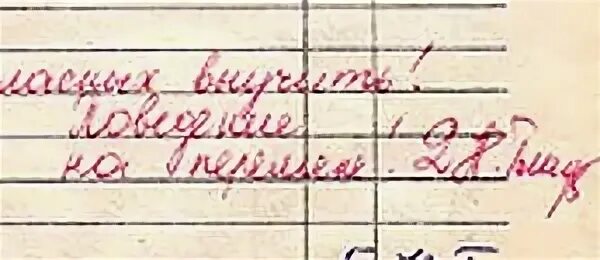 ласных выучить!
Поведение
на перемене! 2